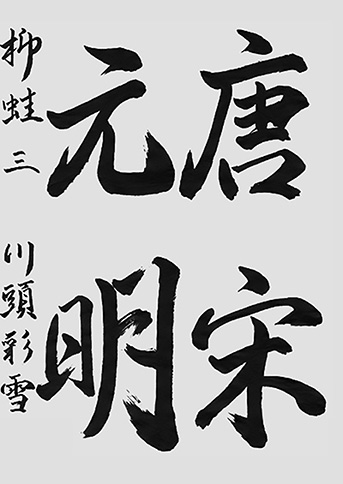 唐宋
元明
柳蛙三 川頭彩雪